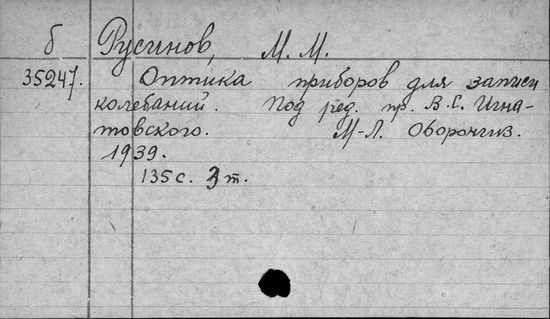 б Русинов, М. М.
35247. Оптика приборов для записи
колебаний. Под ред. пр. В.С. Игна-
товского. М-Л. Оборонгиз.
1939.
135 с. 3 т.